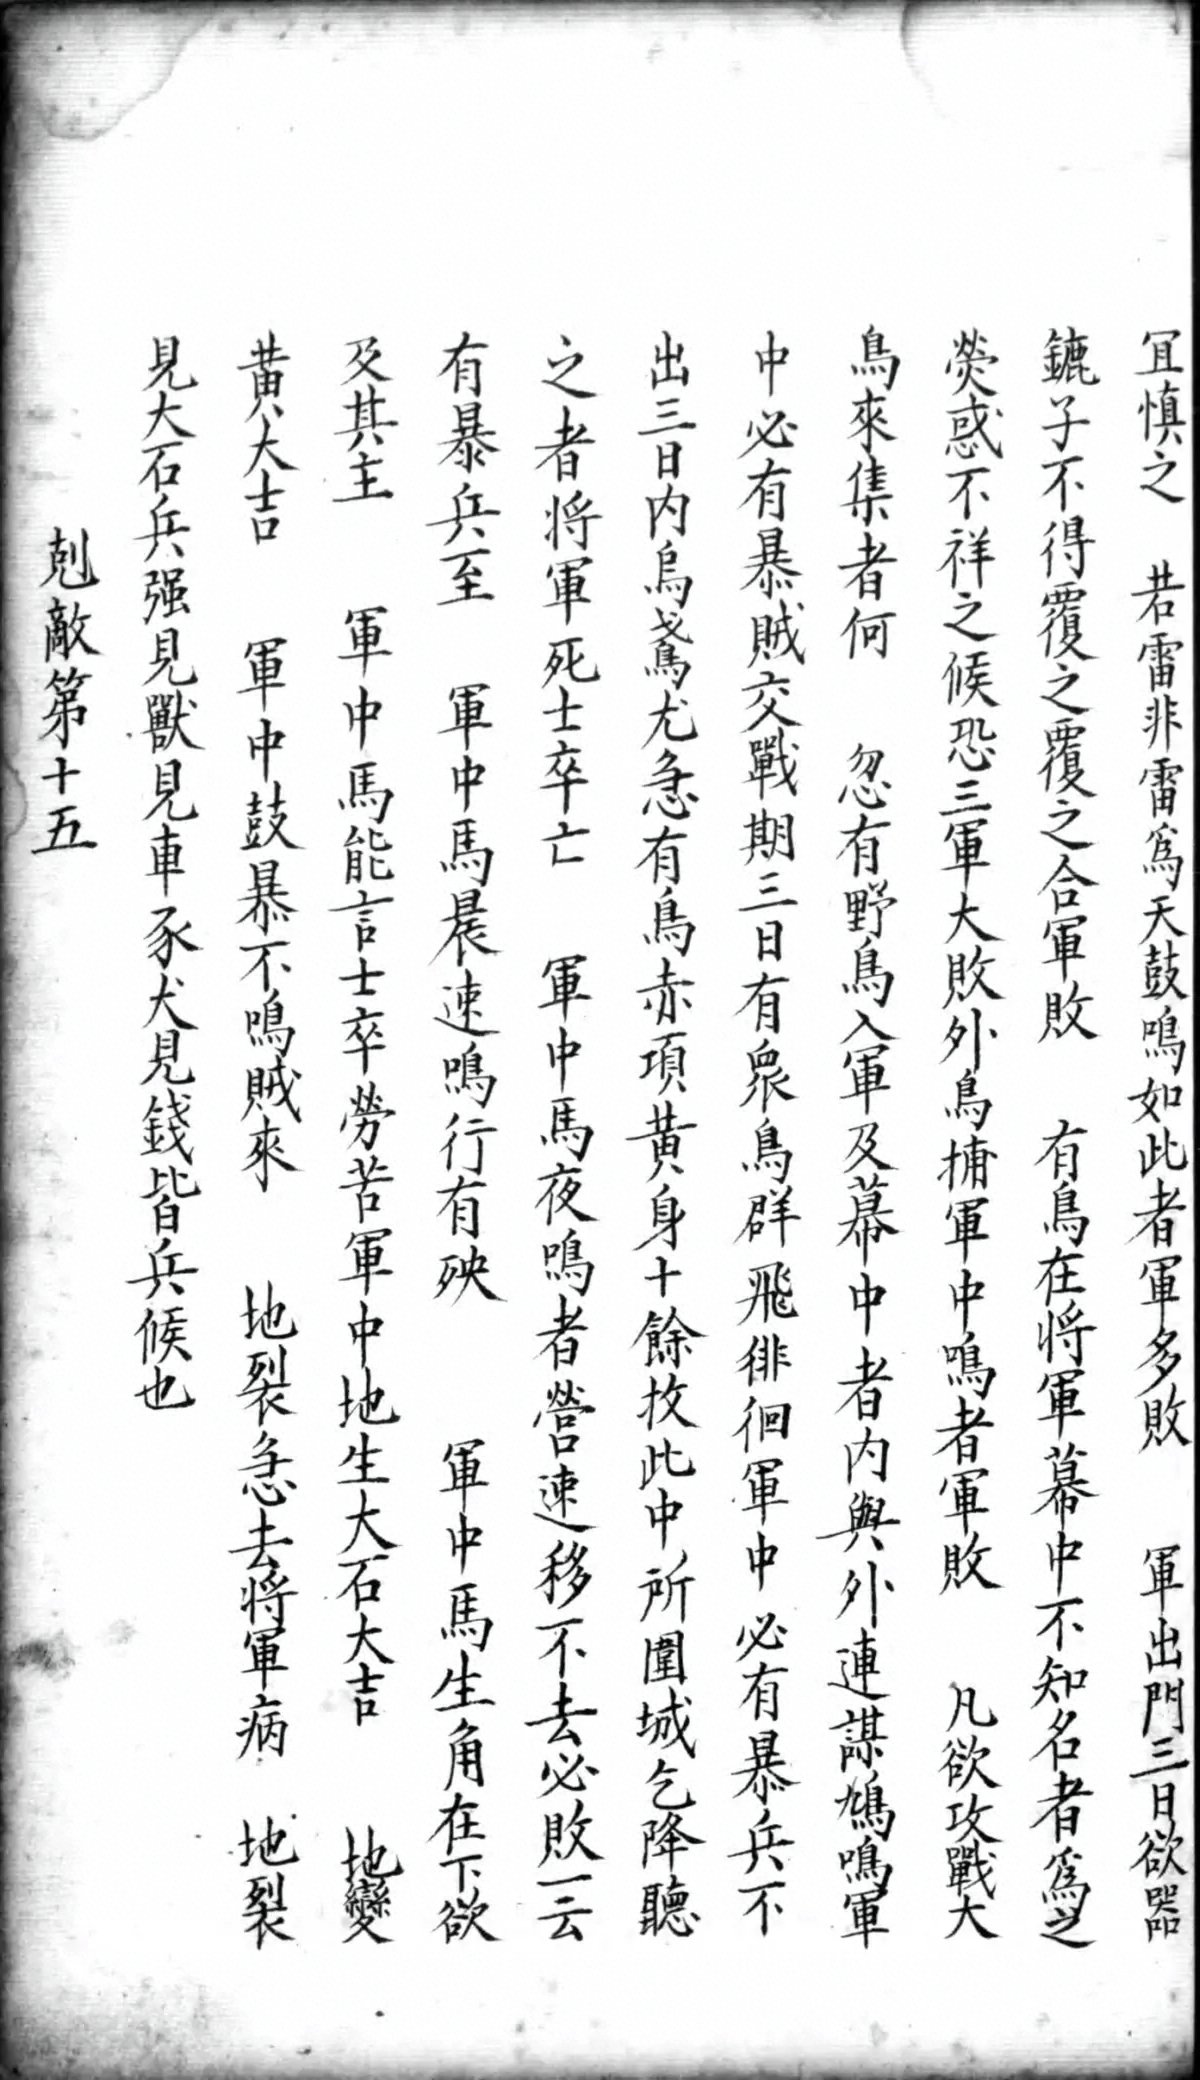 冝慎之　若雷非雷為天鼓鳴如此者軍多敗　軍出門三日欲器
鑣子不得覆之覆之合軍敗　有鳥在将軍幕中不知名者為之
熒惑不祥之候恐三軍大敗外鳥捕軍中鳴者軍敗　凡欲攻戰大
鳥來集者何　忽有野鳥入軍及幕中者内與外連謀鳩鳴軍
中必有暴賊交戰期三日有衆鳥群飛徘徊軍中必有暴兵不
出三日内烏鳶尤急有鳥赤項黄身十餘枚此中所圍城乞降聽
之者将軍死士卒亡　軍中馬夜鳴者營速移不去必敗一云
有暴兵至　軍中馬晨速鳴行有殃　軍中馬生角在下欲
及其主　軍中馬能言士卒勞苦軍中地生大石大吉　地變
黄大吉　軍中鼓暴不鳴賊來　地裂急去将軍病　地裂
見大石兵强見獸見車豕犬見錢皆兵候也
剋敵第十五